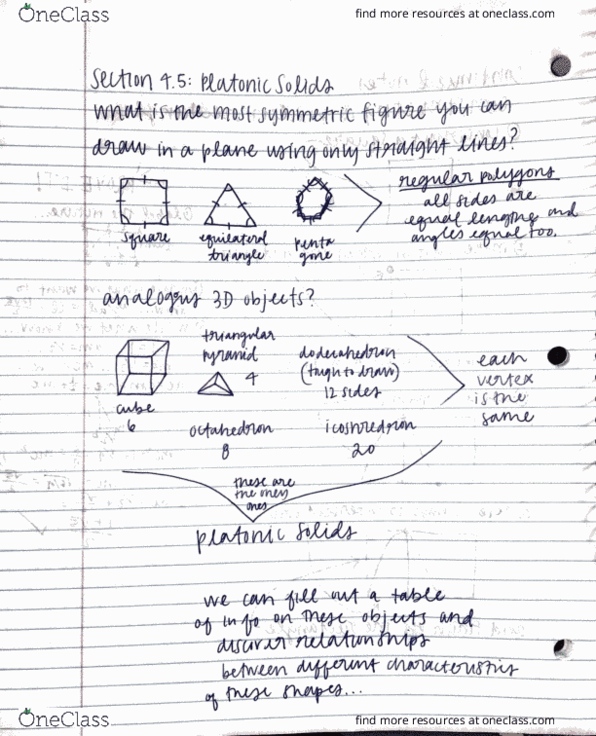 OneClass
find more resources at oneclass.com
Section 4.5: Platonic Solids
what is the most symmetric figure you can
draw in a plane using only straight lines?
square
equilateral
triangle
penta
gone
regular polygons
all sides are
equal lengths and
angles equal too.
analogus 3D objects?
cube
6
triangular
pyramid
4
dodecahedron
(tough to draw)
12 sides
octahedron
8
icoshredron
20
each
vertex
is the
same
these are
the only
ones
Platonic Solids
we can fill out a table
of info on these objects and
discover relationships
between different characteristics
of these shapes...
OneClass
find more resources at oneclass.com